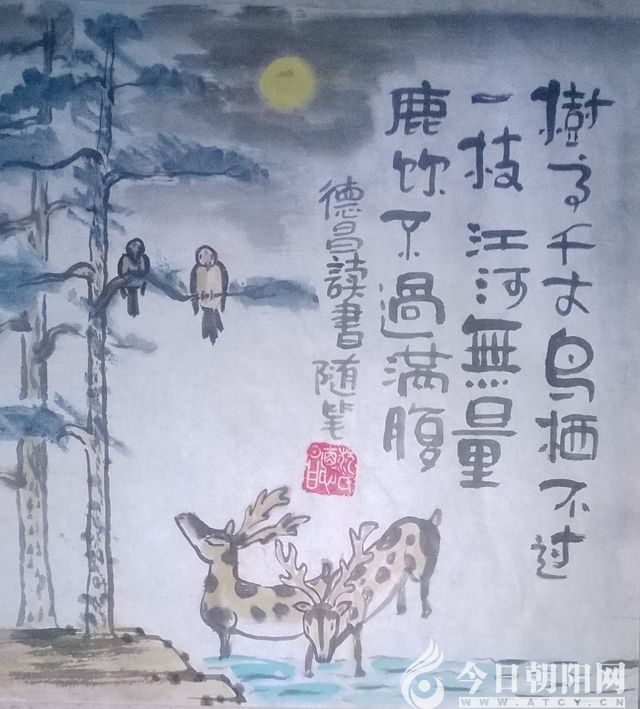 樹高千丈鸟栖不过
一枝江河無量
鹿饮不過满腹
德昌读書随笔
今日朝阳网
WWW.ATCY.CN